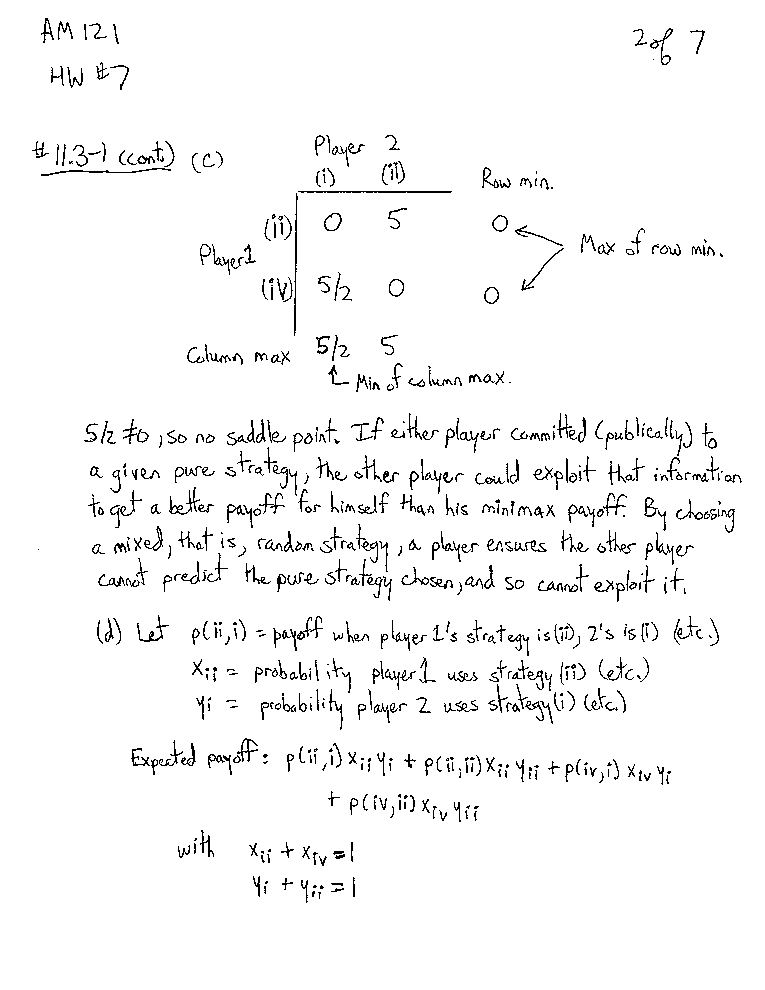 AM 121
2 of 7
HW #7
# 11.3-1 (cont.) (c)
Player 2
(i) (ii) Row min.
(ii) 0 5 0
Player 1
Max of row min.
(iv) 5/2 0 0
Column max 5/2 5
Min of column max.
5/2 ≠ 0, so no saddle point. If either player committed (publically) to
a given pure strategy, the other player could exploit that information
to get a better payoff for himself than his minimax payoff. By choosing
a mixed, that is, random strategy, a player ensures the other player
cannot predict the pure strategy chosen, and so cannot exploit it.
(d) Let p(ii,i) = payoff when player 1's strategy is (ii), 2's is (i) (etc.)
x_ii = probability player 1 uses strategy (ii) (etc.)
y_i = probability player 2 uses strategy (i) (etc.)
Expected payoff: p(ii,i) x_ii y_i + p(ii,ii) x_ii y_ii + p(iv,i) x_iv y_i
+ p(iv,ii) x_iv y_ii
with x_ii + x_iv = 1
y_i + y_ii = 1